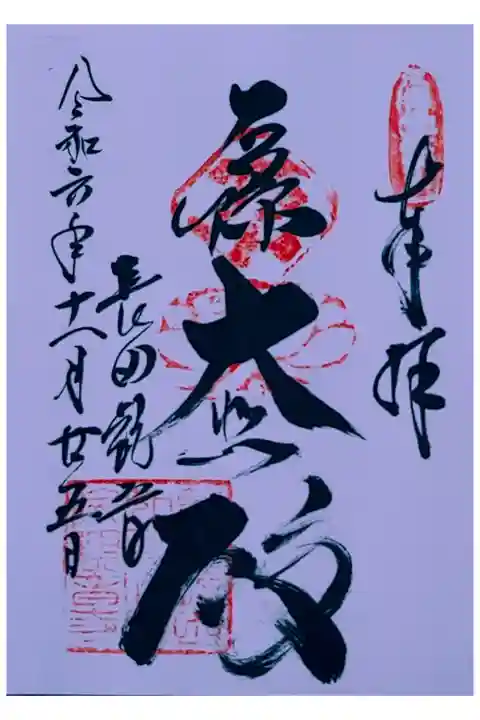 奉拝
大悲殿
長田観音
令和六年十一月廿五日